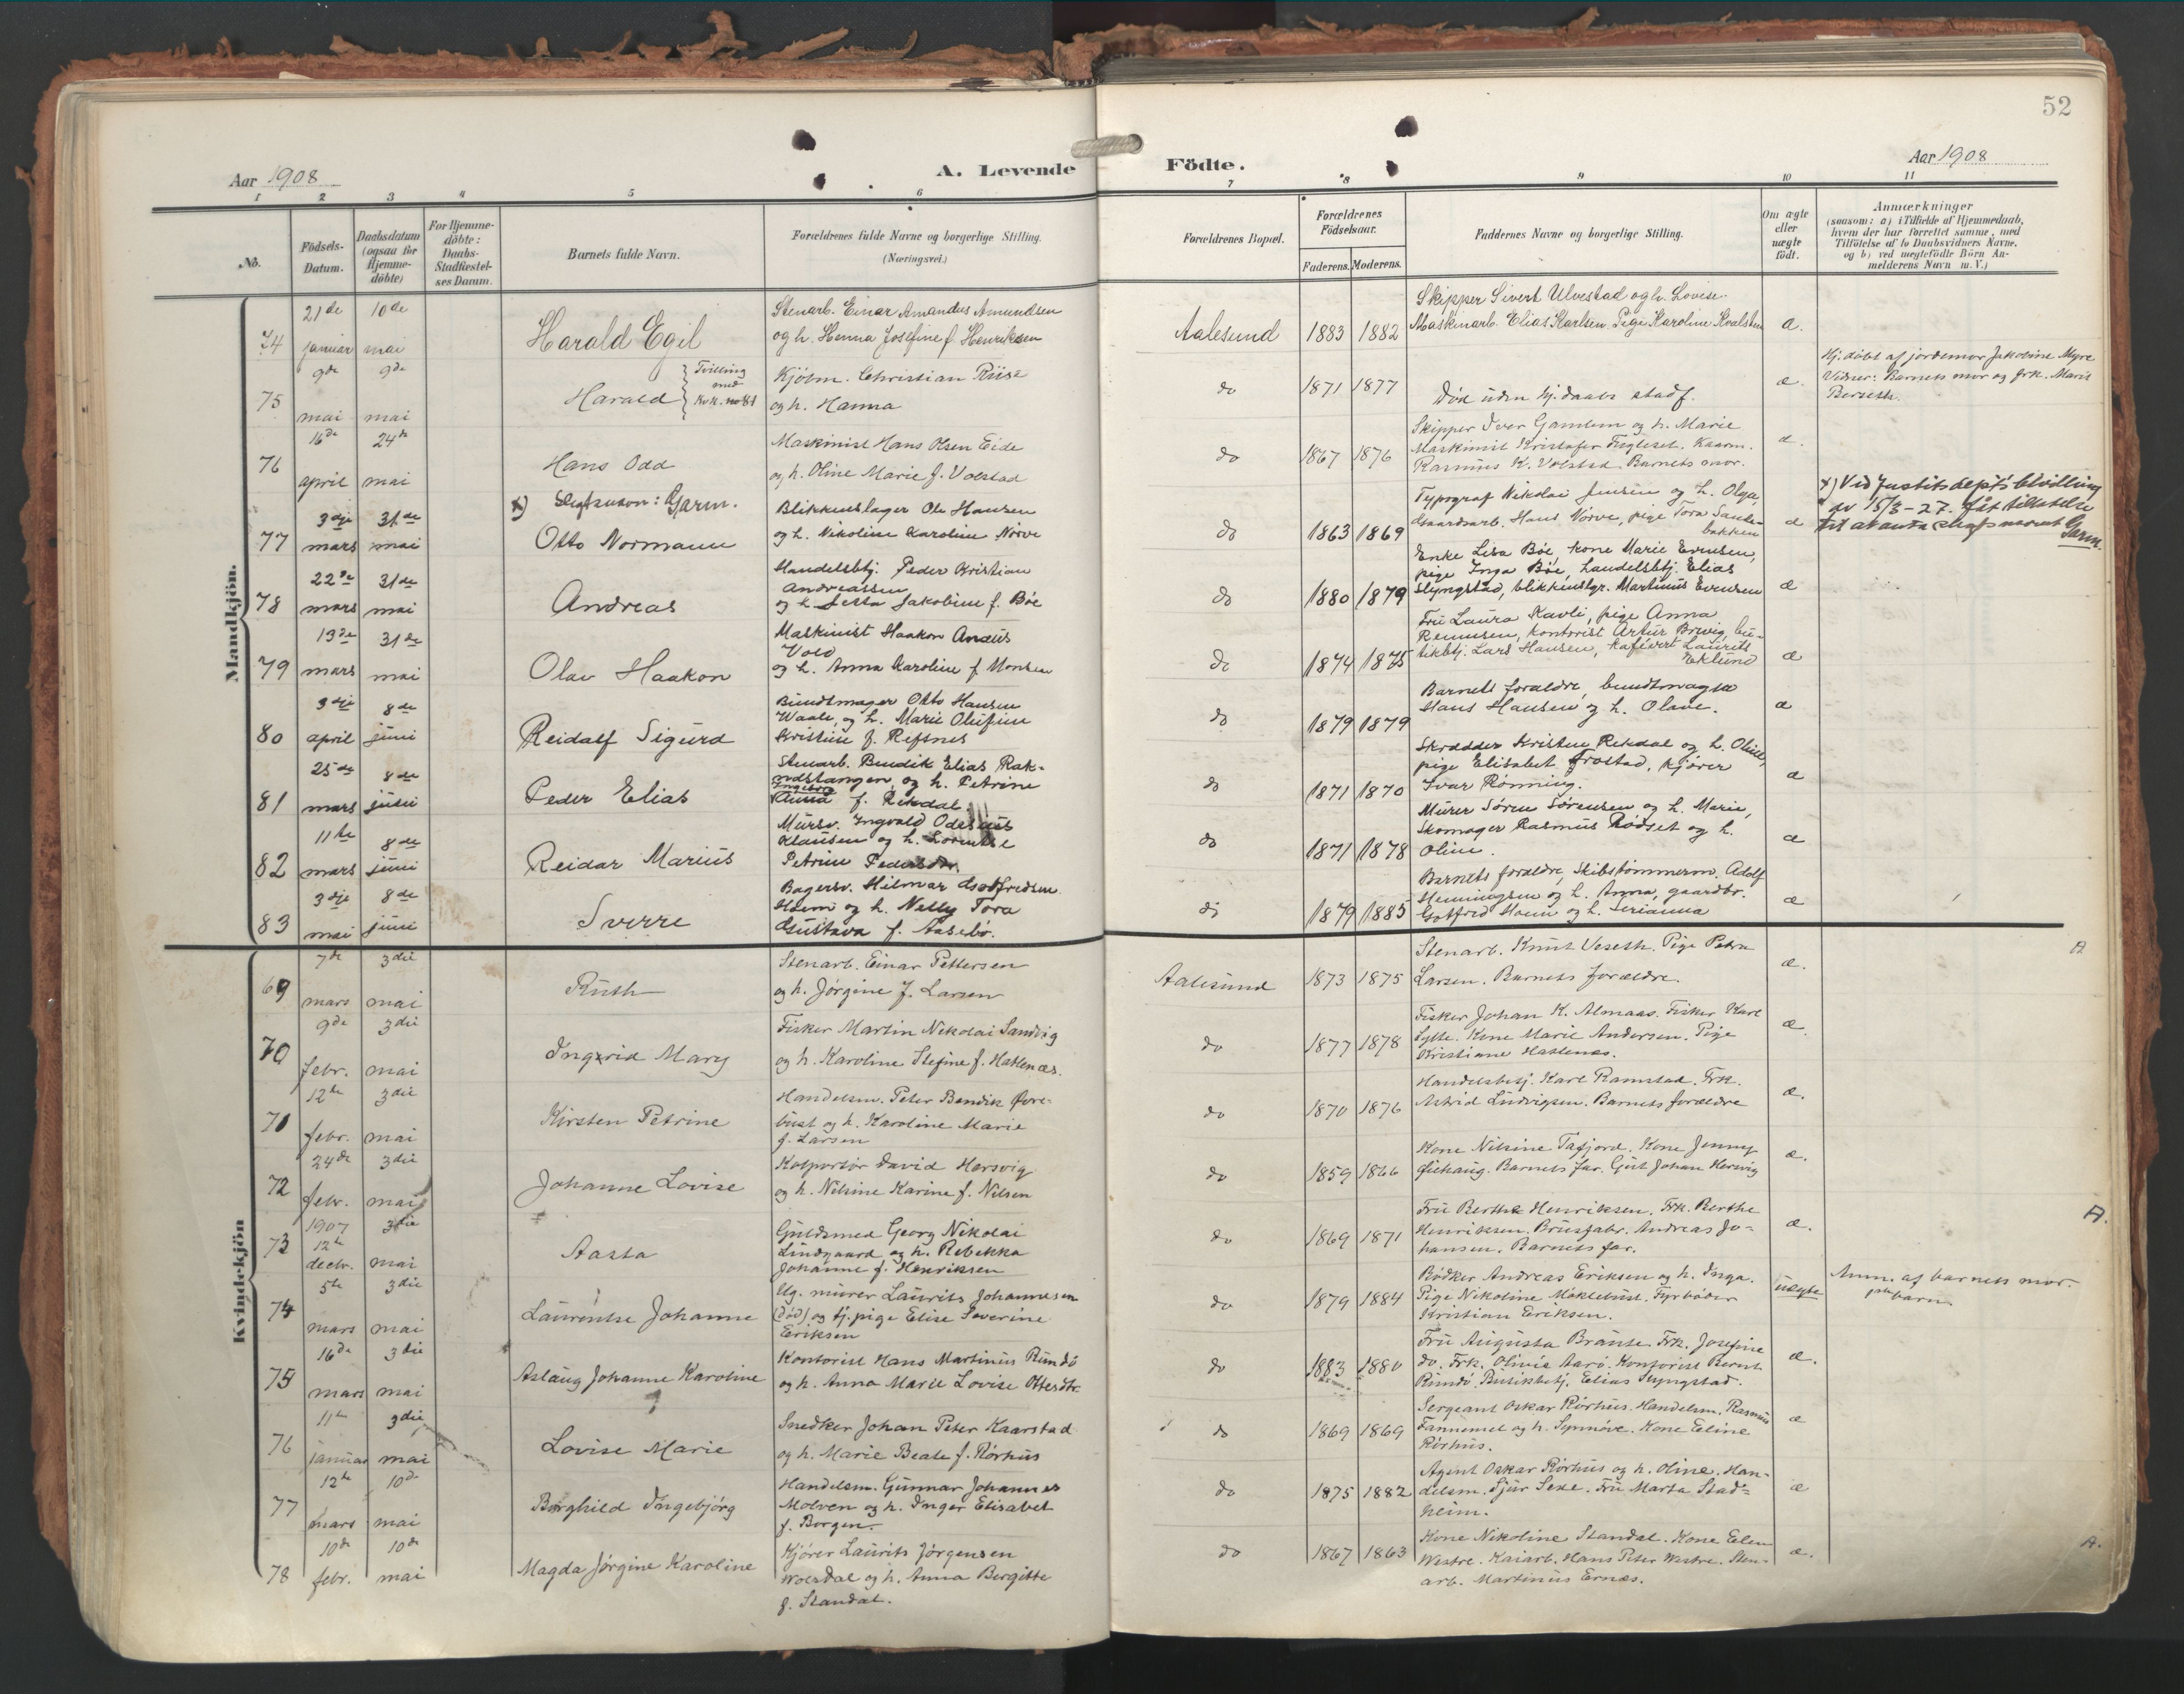 52
Aar 1908
A. Levende
Födte.
Aar 1908
1 2 3 4 5 6 7 8 9 10 11
No.
Födsels-
Datum.
Daabsdatum
(ogsaa for
Hjemme-
döbte)
For Hjemme-
döbte:
Daabs-
Stadfæstel-
ses Datum.
Barnets fulde Navn.
Forældrenes fulde Navne og borgerlige Stilling.
(Næringsvei.)
Forældrenes Bopæl.
Forældrenes
Födselsaar.
Faderens. Moderens.
Faddernes Navne og borgerlige Stilling.
Om ægte
eller
uægte
födt.
Anmærkninger
(saasom: a) i Tilfælde af Hjemmedaab,
hvem der har forrettet samme, med
Tilföielse af to Daabsvidners Navne,
og b) ved uægtefödte Börn An-
melderens Navn m. V.)
Mandkjön.
74 21de januar 10de mai
Harald Egil
Stenarb. Einar Amandus Amundsen
og h. Hanna Josefine f. Henriksen
Aalesund 1883 1882
Skipper Sivert Ulvestad og h. Lovise.
Maskinarb. Elias Karlsen. Pige Karoline Kvalsten
æ.
75 9de mai 9de mai
Harald
Tvilling
med
Kvk. no 81
Kjøbm. Christian Riise
og h. Hanna
do 1871 1877
Død uden hj.daabs stadf.
æ.
Hj.døbt af jordemor Jakobine Myre
Vidner: Barnets mor og frk. Marit
Berseth.
76 16de april 24de mai
Hans Odd
Maskinist Hans Olsen Eide
og h. Oline Marie f. Volstad
do 1867 1876
Skipper Iver Gamlem og h. Marie
Maskinist Kristofer Fugleset. Kaarm.
Rasmus K. Volstad. Barnets mor.
æ.
77 3dje mars 31de mai
x) Slegtsnavn: Garm.
Otto Normann
Blikkenslager Ole Hansen
og h. Nikoline Karoline Nørve
do 1863 1869
Typograf Nikolai Jensen og h. Olga,
Gaardsarb. Hans Nørve, pige Tora Sande-
bakken
æ
x) Ved Justitsdepts bevilling
av 15/3-27. fåt tilladelse
til at anta slegtsnavnet Garm.
78 22de mars 31de mai
Andreas
Handelsbtj. Peder Kristian
Andreassen
og h. Jetta Jakobine f. Bøe
do 1880 1879
Enke Lisa Bøe, kone Marie Evensen,
pige Inga Bøe, handelsbtj. Elias
Slyngstad, blikkenslgr. Martinus Evensen
æ
79 13de mars 31de mai
Olav Haakon
Maskinist Haakon Anæus
Vold
og h. Anna Karoline f. Monsen
do 1874 1875
Fru Laura Kavli, pige Anna
Remmsen, kontorist Artur Brevig, bu-
tikbtj. Lars Hansen, kafévert Laurits
Eklund
æ
80 3dje april 8de juni
Reidolf Sigurd
Bundtmager Otto Hansen
Waale, og h. Marie Olufine
Kristine f. Refsnes
do 1879 1879
Barnets forældre, bundtmager
Hans Hansen og h. Olave.
æ
81 25de mars 8de juni
Peder Elias
Stenarb. Bendik Elias Rak-
nestangen og h. Petrine
Ingeborg
Anna f. Rekdal.
do 1871 1870
Skrædder Kristen Rekdal og h. Oline,
pige Elisabet Frostad, kjører
Ivar Rønning.
æ
82 11te mars 8de juni
Reidar Marius
Mursv. Ingvald Odesius
Klausen og h. Lorentse
Petrine Pedersdtr.
do 1871 1878
Murer Søren Sørensen og h. Marie,
Skomager Rasmus Rødset og h.
Oline.
æ
83 3dje mai 8de juni
Sverre
Bagersv. Hilmar Gotfredsen
Hoem og h. Nelly Tora
Gustava f. Aasebø.
do 1879 1885
Barnets forældre, Skibstømmerm. Adolf
Henningsen og h. Anna, gaardbr.
Gotfred Hoem og h. Serianna
æ
Kvindekjön
69 7de mars 3die mai
Ruth
Stenarb. Einar Pettersen
og h. Jørgine f. Larsen
Aalesund 1873 1875
Stenarb. Knut Veseth. Pige Petra
Larsen. Barnets forældre.
æ.
A
70 9de febr. 3die mai
Ingrid Mary
Fisker Martin Nikolai Sandvig
og h. Karoline Stefine f. Hatlenæs.
do 1877 1878
Fisker Johan K. Almaas. Fisker Karl
Sylte. Kone Marie Andersen. Pige
Kristiane Hatlenæs.
æ.
71 12te febr. 3die mai
Kirsten Petrine
Handelsm. Peter Bendik Øvre-
bust og h. Karoline Marie
f. Larsen
do 1870 1876
Handelsbetj. Karl Ramstad. Frk.
Astrid Ludvigsen. Barnets forældre
æ.
72 24de febr. 3die mai
Johanne Lovise
Kolportør David Hersvig
og h. Nilsine Karine f. Nilsen
do 1859 1866
Kone Nilsine Tafjord. Kone Jenny
Giehaug. Barnets far. Gut Johan Hersvig
æ.
73 1907 12te decbr. 3die mai
Aasta
Guldsmed Georg Nikolai
Lindgaard og h. Rebekka
Johanne f. Henriksen
do 1869 1871
Fru Berthe Henriksen. Frk. Berthe
Henriksen. Brusfabr. Andreas Jo-
hansen. Barnets far.
æ.
A.
74 5te mars 3die mai
Laurentse Johanne
Ug. murer Laurits Johannesen
(død) og tj.pige Elise Severine
Eriksen
do 1879 1884
Bødker Andreas Eriksen og h. Inga.
Pige Nikoline Møklebust. Fyrbøder
Kristian Eriksen.
uægte
Anm. af barnets mor.
barn
75 16de mars 3die mai
Aslaug Johanne Karoline
Kontorist Hans Martinus Rundø
og h. Anna Marie Lovise Ottersdtr.
do 1883 1880
Fru Augusta Brånte. Frk. Josefine
do. Frk. Olivie Aarø. Kontorist Bernt
Rundø. Butikbetj. Elias Slyngstad.
æ.
76 11te januar 3die mai
Lovise Marie
Snedker Johan Peter Kaarstad
og h. Marie Beate f. Rørhus
do 1869 1869
Sergeant Oskar Rørhus. Handelsm. Rasmus
Fannemel og h. Synnøve. Kone Eline
Rørhus.
æ
77 12te mars 10de mai
Borghild Ingebjørg
Handelsm. Gunnar Johannes
Molven og h. Inger Elisabet
f. Borgen.
do 1875 1882
Agent Oskar Rørhus og h. Oline. Han-
delsm. Sjur Sexe. Fru Marta Stad-
heim.
æ
78 10de febr. 10de mai
Magda Jørgine Karoline
Kjører Laurits Jørgensen
Wolsdal og h. Anna Bergitte
f. Standal.
do 1867 1863
Kone Nikoline Standal. Kone Elen
Westre. Kaiarb. Hans Peter Westre. Sten-
arb. Martinus Ernæs.
æ.
A.